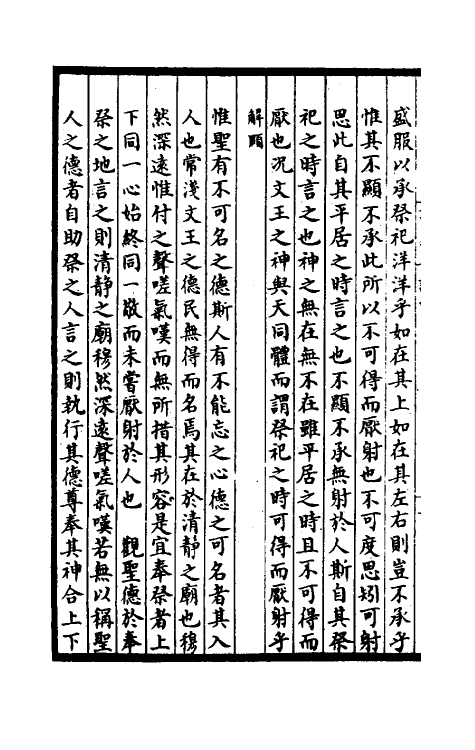 盛服以承祭祀洋洋乎如在其上如在其左右則豈不承乎
惟其不顯不承此所以不可得而厭射也不可度思矧可射
思此自其平居之時言之也不顯不承無射於人斯自其祭
祀之時言之也神之無在無不在雖平居之時且不可得而
厭也况文王之神與天同體而謂祭祀之時可得而厭射乎
解頤
惟聖有不可名之德斯人有不能忘之心德之可名者其入
人也常淺文王之德民無得而名焉其在於清静之廟也穆
然深遠惟付之聲嗟氣嘆而無所措其形容是宜奉祭者上
下同一心始終同一敬而未嘗厭射於人也　觀聖德於奉
祭之地言之則清静之廟穆然深遠聲嗟氣嘆若無以稱聖
人之德者自助祭之人言之則執行其德尊奉其神合上下